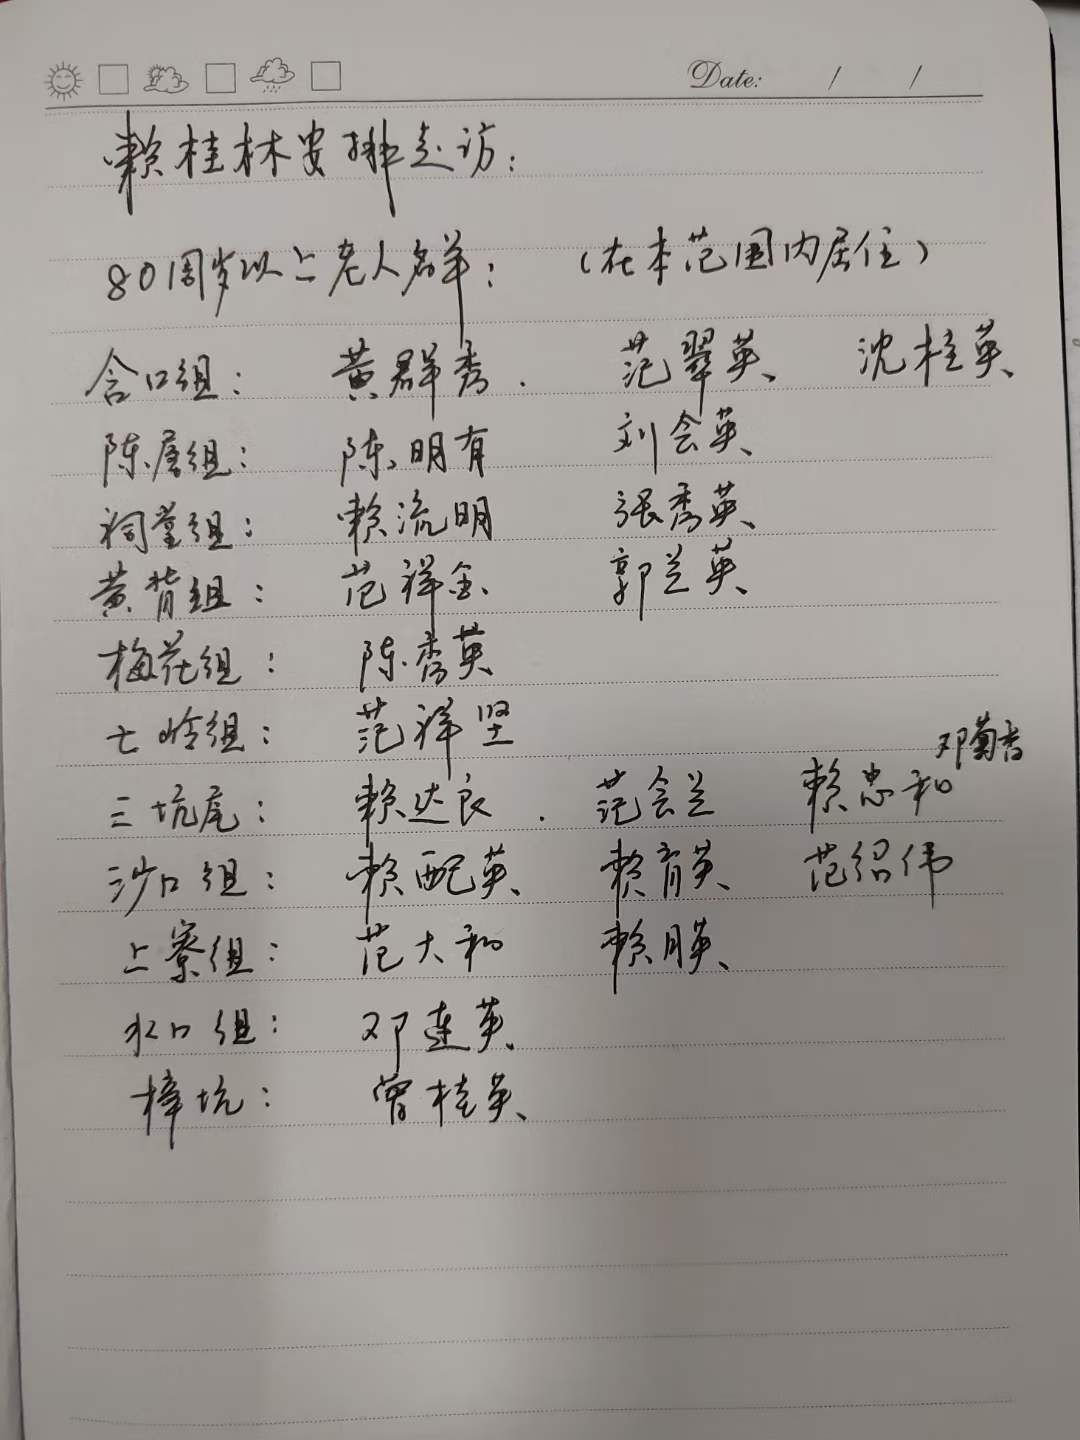 Date: / /
赖桂林安排走访：
80周岁以上老人名单：（在本范围内居住）
含口组：黄群秀．范翠英、沈桂英、
陈屋组：陈明有 刘会英、
祠堂组：赖流明 张秀英、
黄背组：范祥金、郭兰英、
梅花组：陈秀英
七岭组：范祥坚
邓菊香
三坑尾：赖达良．范会兰 赖忠和
沙口组：赖配英、赖育英、范绍伟
上寮组：范大和 赖月英、
水口组：邓连英、
樟坑：曾桂英、